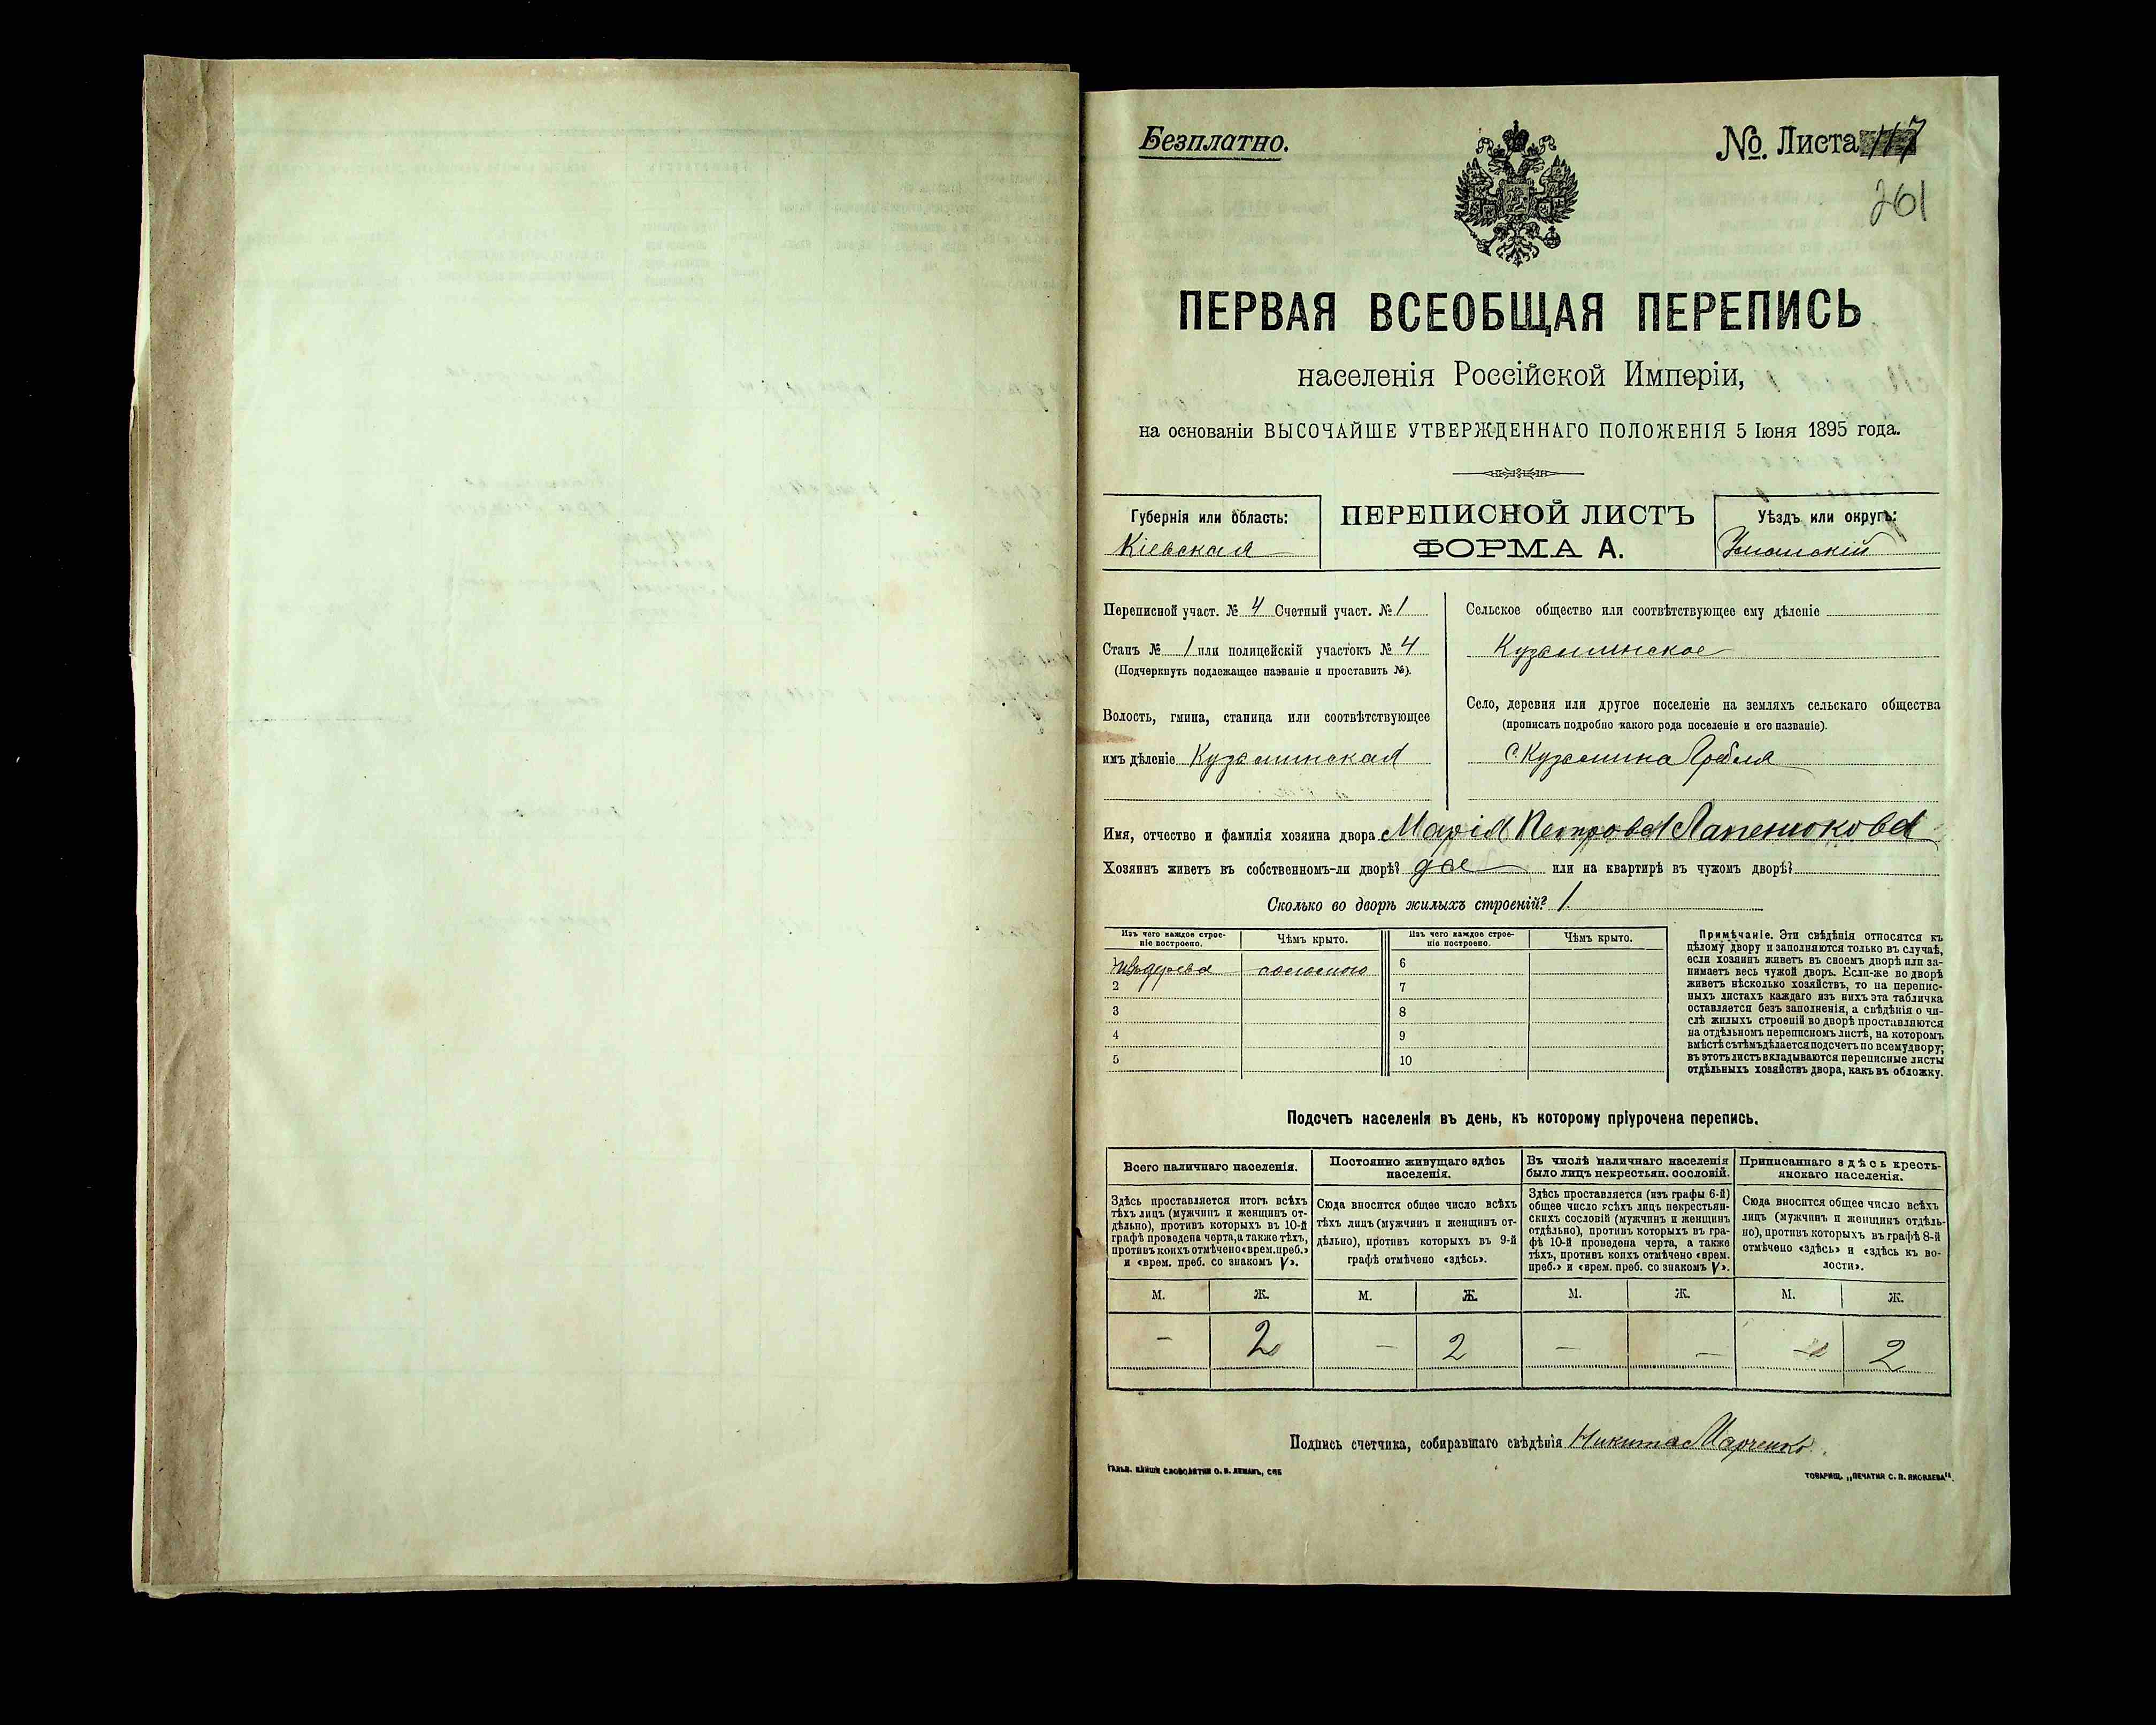 Безплатно.
№ Листа 117
261
ПЕРВАЯ ВСЕОБЩАЯ ПЕРЕПИСЬ
населенія Россійской Имперіи,
на основаніи ВЫСОЧАЙШЕ УТВЕРЖДЕННАГО ПОЛОЖЕНІЯ 5 Іюня 1895 года.
Губернія или область:
Кіевская
ПЕРЕПИСНОЙ ЛИСТЪ
ФОРМА А.
Уѣздъ или округъ:
Уманскій
Переписной участ. № 4 Счетный участ. № 1
Станъ № 1 или полицейскій участокъ № 4
(Подчеркнуть подлежащее названіе и проставить №).
Волость, гмина, станица или соотвѣтствующее
имъ дѣленіе Кузьминская
Сельское общество или соотвѣтствующее ему дѣленіе
Кузьминское
Село, деревня или другое поселеніе на земляхъ сельскаго общества
(прописать подробно какого рода поселеніе и его названіе).
с. Кузьмина Гребля
Имя, отчество и фамилія хозяина двора Марія Петрова Лапенюкова
Хозяинъ живетъ въ собственномъ-ли дворѣ? да или на квартирѣ въ чужомъ дворѣ?
Сколько во дворѣ жилыхъ строеній? 1.
Изъ чего каждое строе-
ніе построено.
Чѣмъ крыто.
Изъ чего каждое строе-
ніе построено.
Чѣмъ крыто.
1 изъ дерева соломою 6
2 7
3 8
4 9
5 10
Примѣчаніе. Эти свѣдѣнія относятся къ
цѣлому двору и заполняются только въ случаѣ,
если хозяинъ живетъ въ своемъ дворѣ или за-
нимаетъ весь чужой дворъ. Если-же во дворѣ
живетъ нѣсколько хозяйствъ, то на перепис-
ныхъ листахъ каждаго изъ нихъ эта табличка
оставляется безъ заполненія, а свѣдѣнія о чи-
слѣ жилыхъ строеній во дворѣ проставляются
на отдѣльномъ переписномъ листѣ, на которомъ
вмѣстѣ съ тѣмъ дѣлается подсчетъ по всему двору;
въ этотъ листъ вкладываются переписные листы
отдѣльныхъ хозяйствъ двора, какъ въ обложку.
Подсчетъ населенія въ день, къ которому пріурочена перепись.
Всего наличнаго населенія.
Здѣсь проставляется итогъ всѣхъ
тѣхъ лицъ (мужчинъ и женщинъ от-
дѣльно), противъ которыхъ въ 10-й
графѣ проведена черта, а также тѣхъ,
противъ коихъ отмѣчено «врем. преб.»
и «врем. преб. со знакомъ V».
Постоянно живущаго здѣсь
населенія.
Сюда вносится общее число всѣхъ
тѣхъ лицъ (мужчинъ и женщинъ от-
дѣльно), противъ которыхъ въ 9-й
графѣ отмѣчено «здѣсь».
Въ числѣ наличнаго населенія
было лицъ некрестьян. сословій.
Здѣсь проставляется (изъ графы 6-й)
общее число всѣхъ лицъ некрестьян-
скихъ сословій (мужчинъ и женщинъ
отдѣльно), противъ которыхъ въ гра-
фѣ 10-й проведена черта, а также
тѣхъ, противъ коихъ отмѣчено «врем.
преб.» и «врем. преб. со знакомъ V».
Приписаннаго здѣсь кресть-
янскаго населенія.
Сюда вносится общее число всѣхъ
лицъ (мужчинъ и женщинъ отдѣль-
но), противъ которыхъ въ графѣ 8-й
отмѣчено «здѣсь» и «здѣсь къ во-
лости».
М. Ж. М. Ж. М. Ж. М. Ж.
- 2 - 2 - - - 2
Подпись счетчика, собиравшаго свѣдѣнія Никита Марченко.
ГАЛЬВ. КЛИШЕ СЛОВОЛИТНИ О. И. ЛЕМАНЪ, СПБ
ТОВАРИЩ. „ПЕЧАТНЯ С. П. ЯКОВЛЕВА“.